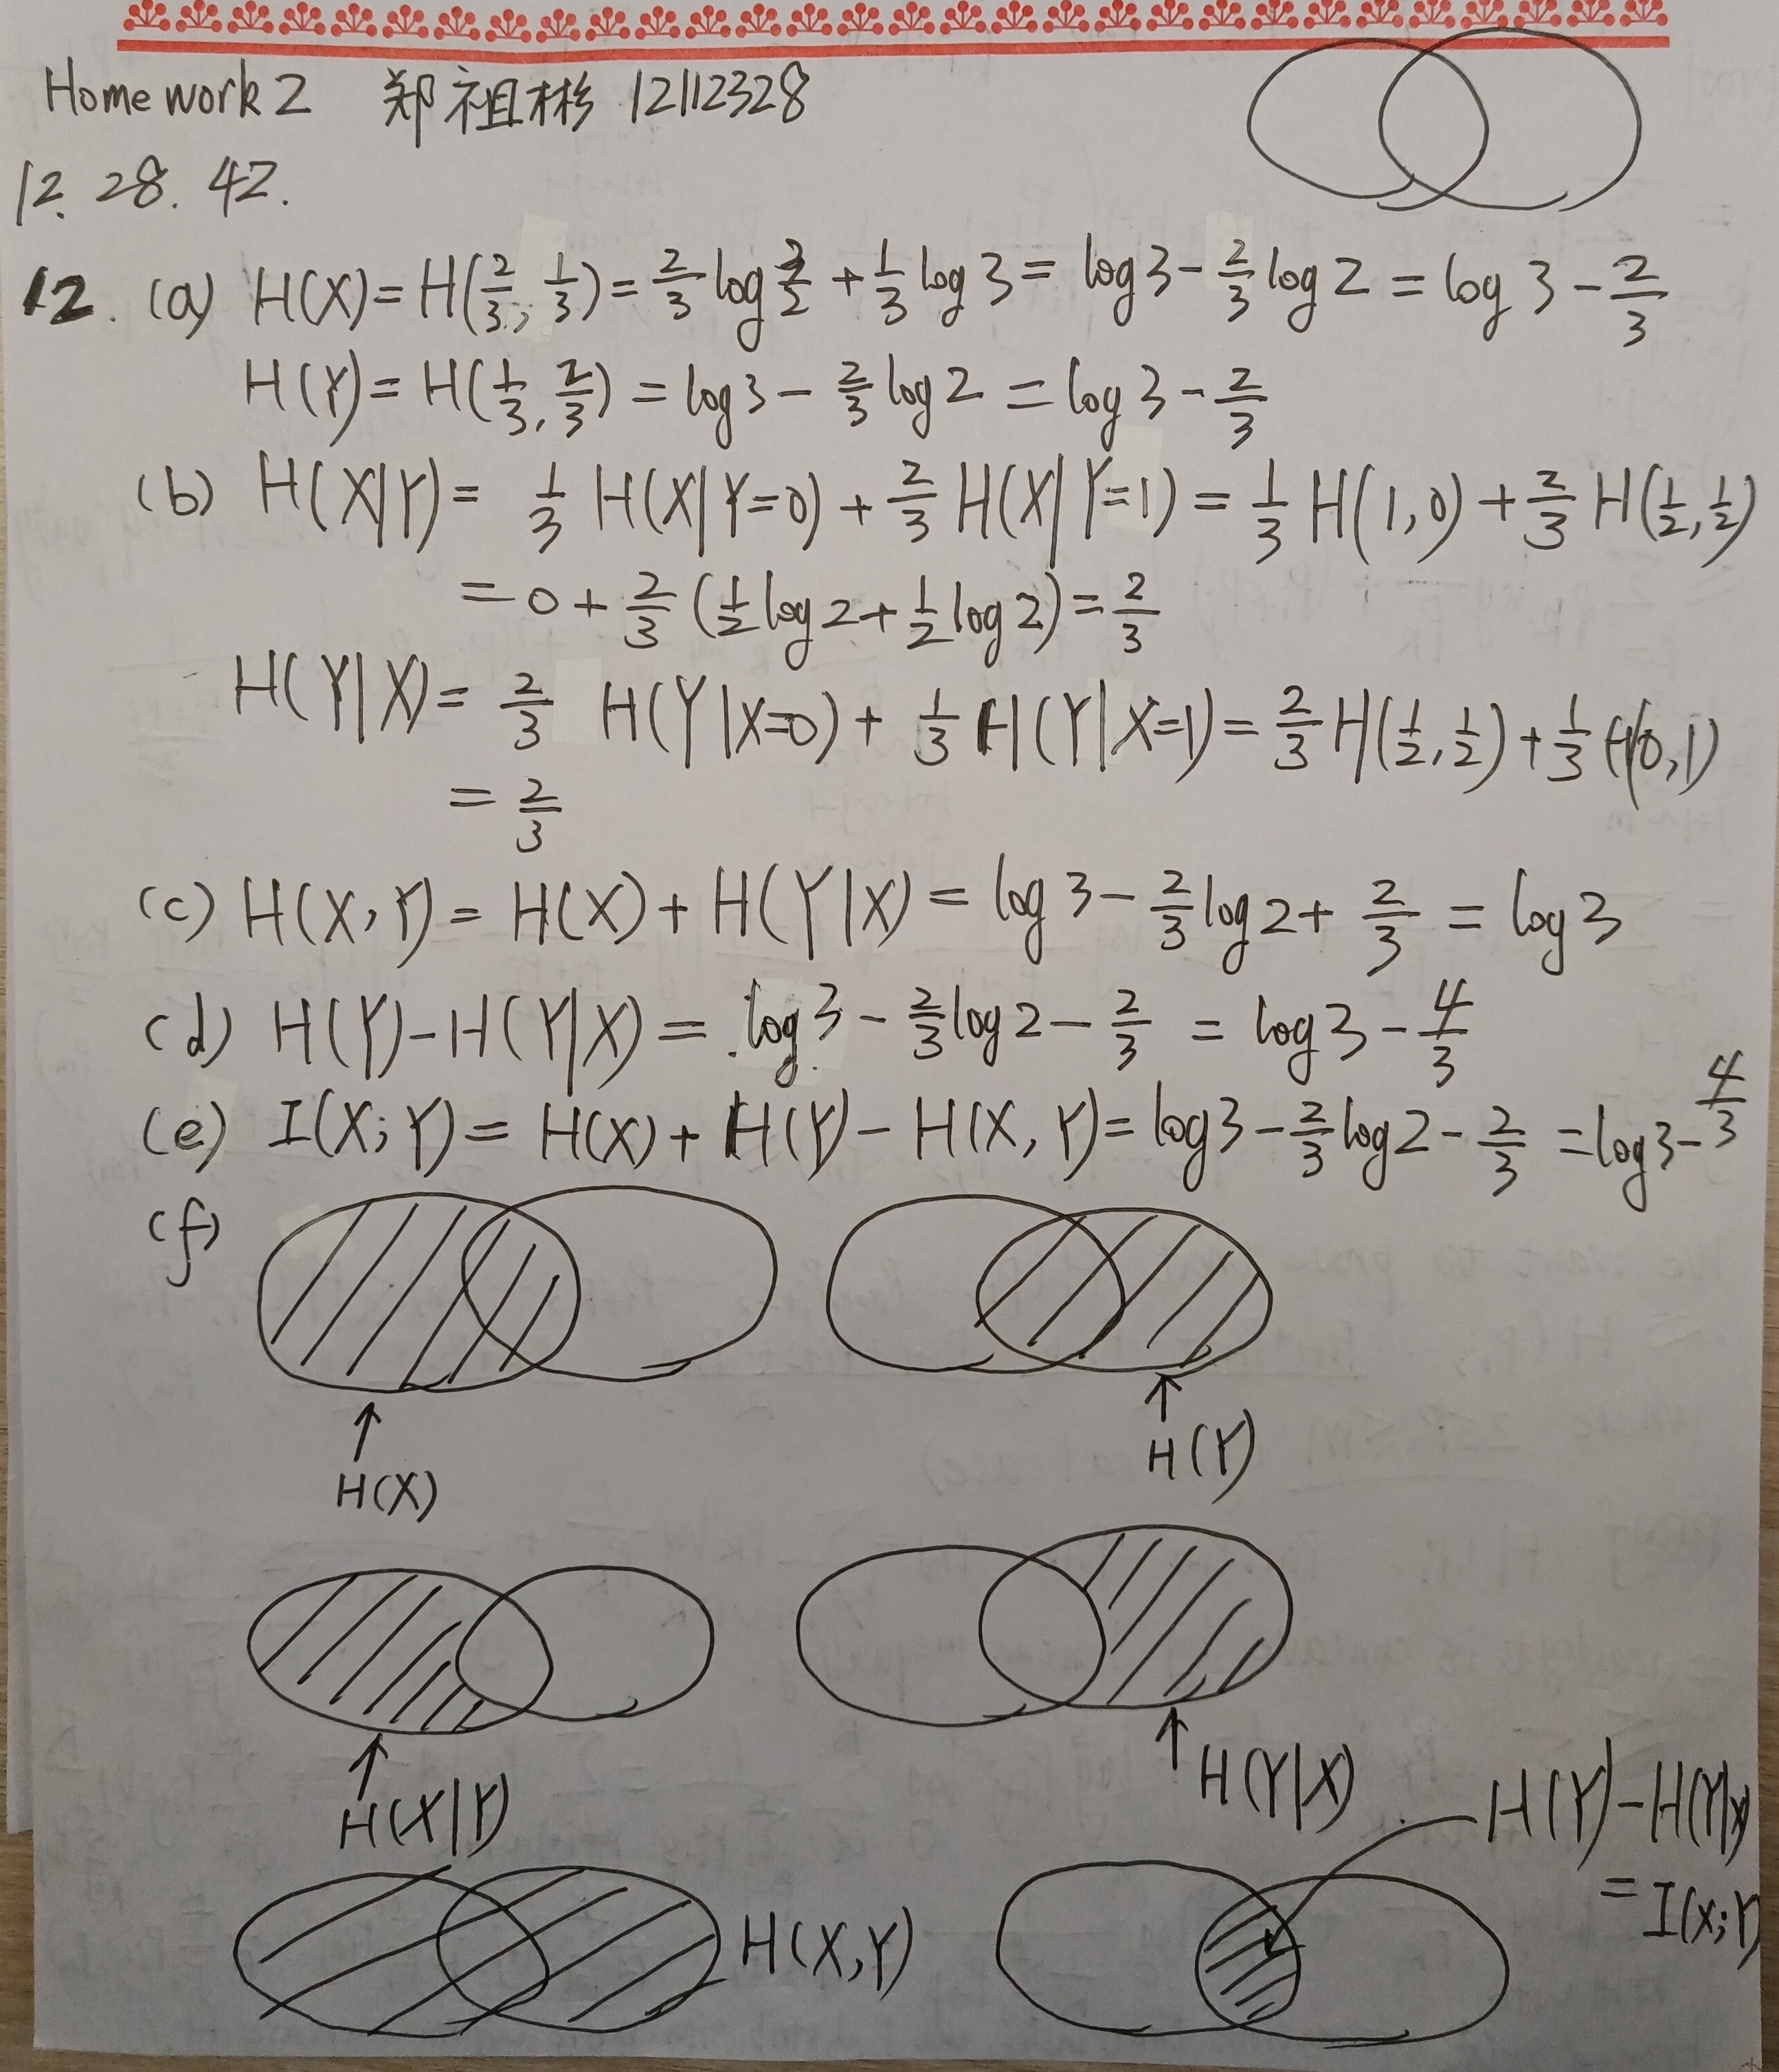 Homework 2 郑祖彬 12112328
12. 28. 42.
12. (a) H(X)=H(2/3, 1/3)=2/3 log 3/2 + 1/3 log 3 = log 3 - 2/3 log 2 = log 3 - 2/3
H(Y)=H(1/3, 2/3) = log 3 - 2/3 log 2 = log 3 - 2/3
(b) H(X|Y)= 1/3 H(X|Y=0) + 2/3 H(X|Y=1) = 1/3 H(1,0) + 2/3 H(1/2, 1/2)
= 0 + 2/3 (1/2 log 2 + 1/2 log 2) = 2/3
H(Y|X)= 2/3 H(Y|X=0) + 1/3 H(Y|X=1) = 2/3 H(1/2, 1/2) + 1/3 H(0,1)
= 2/3
(c) H(X,Y) = H(X) + H(Y|X) = log 3 - 2/3 log 2 + 2/3 = log 3
(d) H(Y)-H(Y|X) = log 3 - 2/3 log 2 - 2/3 = log 3 - 4/3
(e) I(X;Y) = H(X) + H(Y) - H(X,Y) = log 3 - 2/3 log 2 - 2/3 = log 3 - 4/3
(f)
H(X)
H(Y)
H(X|Y)
H(Y|X)
H(Y)-H(Y|X)
= I(X;Y)
H(X,Y)